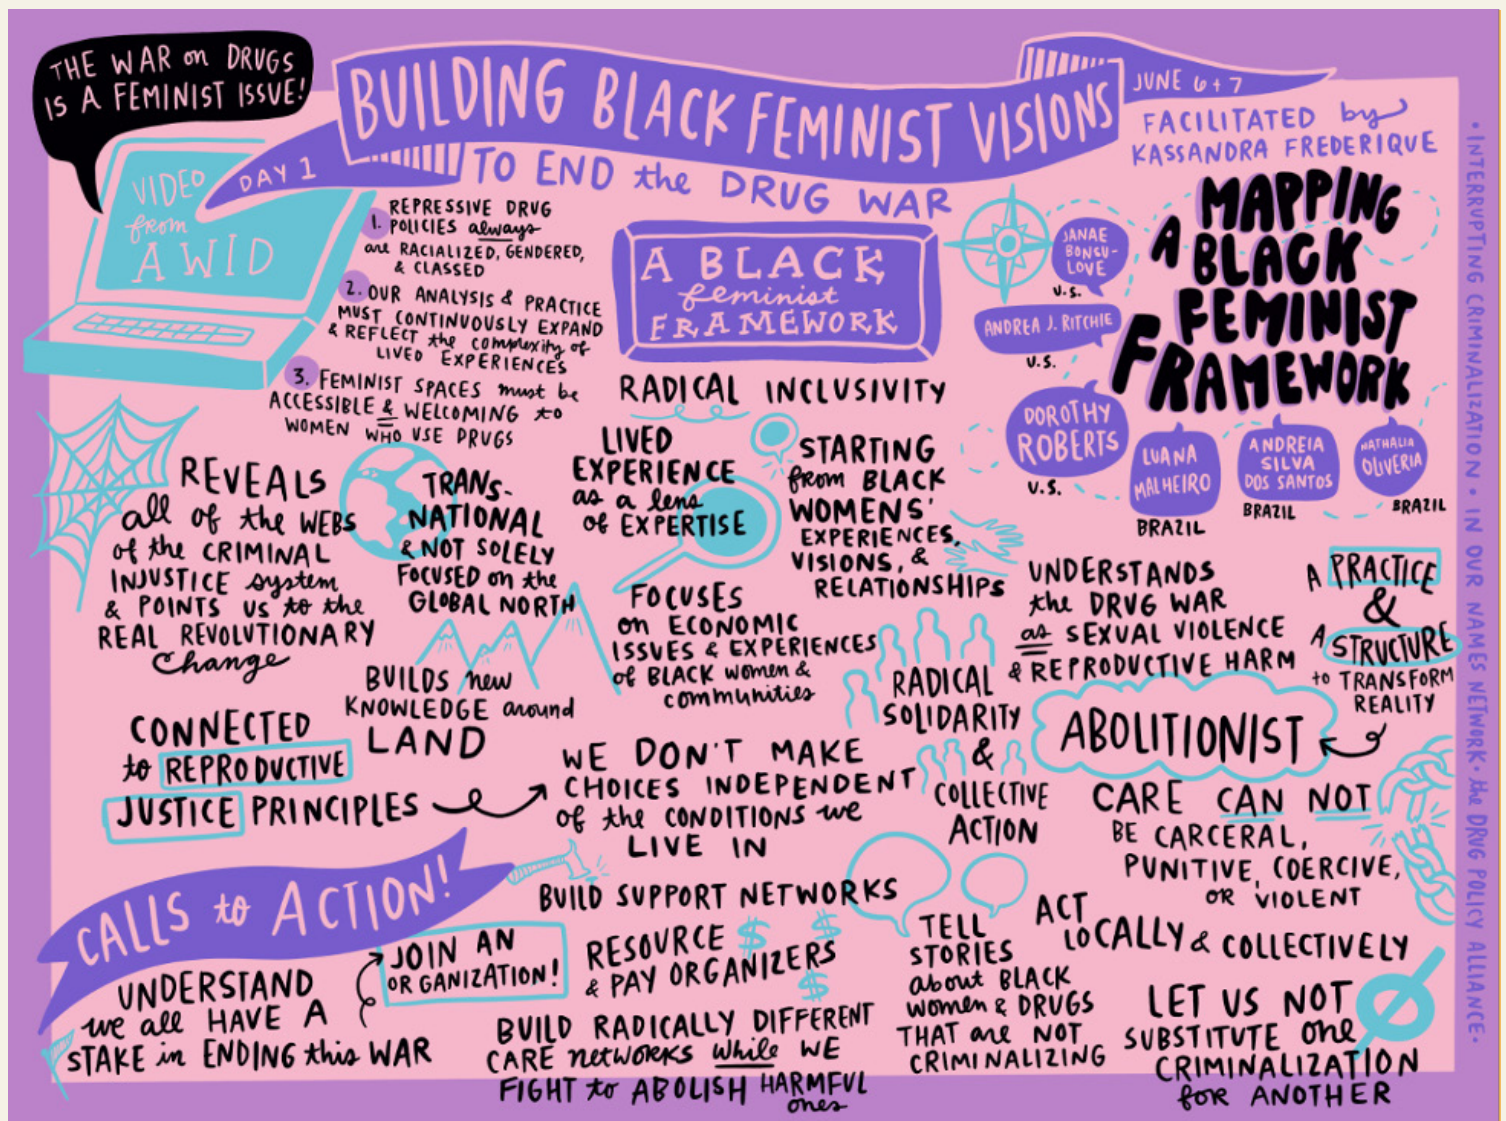 THE WAR on DRUGS
IS A FEMINIST ISSUE!
VIDEO
from
AWID
DAY 1
BUILDING BLACK FEMINIST VISIONS
TO END the DRUG WAR
JUNE 6 + 7
FACILITATED by
KASSANDRA FREDERIQUE
1. REPRESSIVE DRUG
POLICIES always
are RACIALIZED, GENDERED,
& CLASSED
2. OUR ANALYSIS & PRACTICE
MUST CONTINUOUSLY EXPAND
& REFLECT the complexity of
LIVED EXPERIENCES
3. FEMINIST SPACES must be
ACCESSIBLE & WELCOMING to
WOMEN WHO USE DRUGS
A BLACK
feminist
FRAMEWORK
MAPPING
A BLACK
FEMINIST
FRAMEWORK
JANAE
BONSU-
LOVE
U.S.
ANDREA J. RITCHIE
U.S.
DOROTHY
ROBERTS
U.S.
LUANA
MALHEIRO
BRAZIL
ANDREIA
SILVA
DOS SANTOS
BRAZIL
NATHALIA
OLIVERIA
BRAZIL
RADICAL INCLUSIVITY
REVEALS
all of the WEBS
of the CRIMINAL
INJUSTICE system
& POINTS US to the
REAL REVOLUTIONARY
Change
TRANS-
NATIONAL
& NOT SOLELY
FOCUSED on the
GLOBAL NORTH
LIVED
EXPERIENCE
as a lens
of EXPERTISE
STARTING
from BLACK
WOMENS'
EXPERIENCES,
VISIONS, &
RELATIONSHIPS
FOCUSES
on ECONOMIC
ISSUES & EXPERIENCES
of BLACK women &
communities
UNDERSTANDS
the DRUG WAR
as SEXUAL VIOLENCE
& REPRODUCTIVE HARM
A PRACTICE
&
A STRUCTURE
to TRANSFORM
REALITY
BUILDS new
KNOWLEDGE around
LAND
RADICAL
SOLIDARITY
&
COLLECTIVE
ACTION
ABOLITIONIST
CONNECTED
to REPRODUCTIVE
JUSTICE PRINCIPLES
WE DON'T MAKE
CHOICES INDEPENDENT
of the CONDITIONS we
LIVE IN
CARE CAN NOT
BE CARCERAL,
PUNITIVE, COERCIVE,
OR VIOLENT
CALLS to ACTION!
UNDERSTAND
we all HAVE A
STAKE in ENDING this WAR
JOIN AN
ORGANIZATION!
BUILD SUPPORT NETWORKS
RESOURCE
& PAY ORGANIZERS
BUILD RADICALLY DIFFERENT
CARE networks while WE
FIGHT to ABOLISH HARMFUL
ones
TELL
STORIES
about BLACK
women & DRUGS
THAT are NOT
CRIMINALIZING
ACT
LOCALLY & COLLECTIVELY
LET US NOT
SUBSTITUTE one
CRIMINALIZATION
for ANOTHER
• INTERRUPTING CRIMINALIZATION • IN OUR NAMES NETWORK • the DRUG POLICY ALLIANCE •